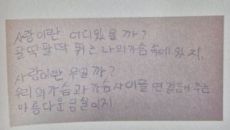 사랑이란 어디 있을까?
팔딱팔딱 뛰는 나의 가슴 속에 있지,
사랑이란 무얼까?
우리의 가슴과 가슴 사이를 연결해 주는
아름다운 금실이지